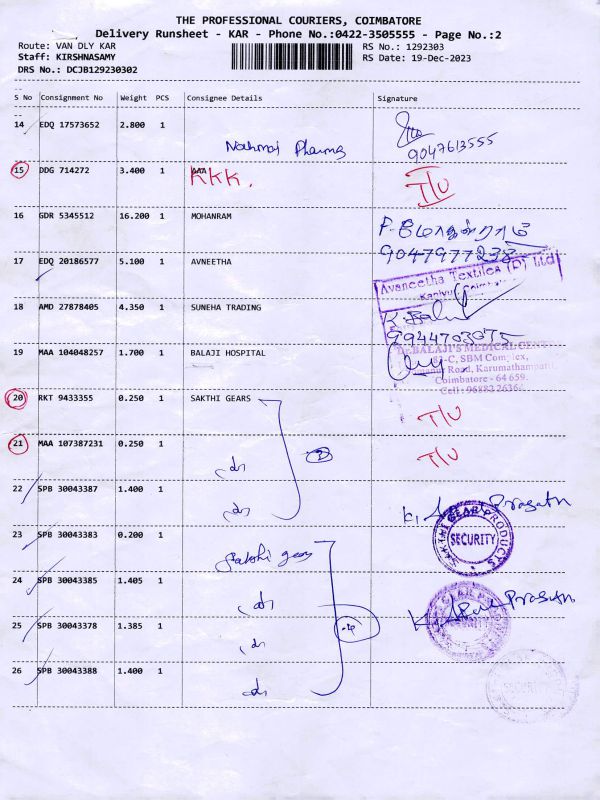 THE PROFESSIONAL COURIERS, COIMBATORE
Delivery Runsheet - KAR - Phone No.:0422-3505555 - Page No.:2
Route: VAN DLY KAR RS No.: 1292303
Staff: KIRSHNASAMY RS Date: 19-Dec-2023
DRS No.: DCJB129230302
S No Consignment No Weight PCS Consignee Details Signature
14 EDQ 17573652 2.800 1
9047613555
15 DDG 714272 3.400 1 AAA
KKK. T/U
16 GDR 5345512 16.200 1 MOHANRAM
9047977238
17 EDQ 20186577 5.100 1 AVNEETHA
Avaneetha Textiles (P) Ltd
18 AMD 27878405 4.350 1 SUNEHA TRADING
K. Balu
9944703075
19 MAA 104048257 1.700 1 BALAJI HOSPITAL
Dr.BALAJI'S MEDICAL CENT
SBM Complex,
Road, Karumathampatti,
Coimbatore - 64 659.
20 RKT 9433355 0.250 1 SAKTHI GEARS T/U
21 MAA 107387231 0.250 1 T/U
22 SPB 30043387 1.400 1
Prasath
23 SPB 30043383 0.200 1 Sakthi gears
SAKTHI GEAR PRODUCTS
SECURITY
24 SPB 30043385 1.405 1
Prasath
25 SPB 30043378 1.385 1
SECURITY
26 SPB 30043388 1.400 1
SECURITY